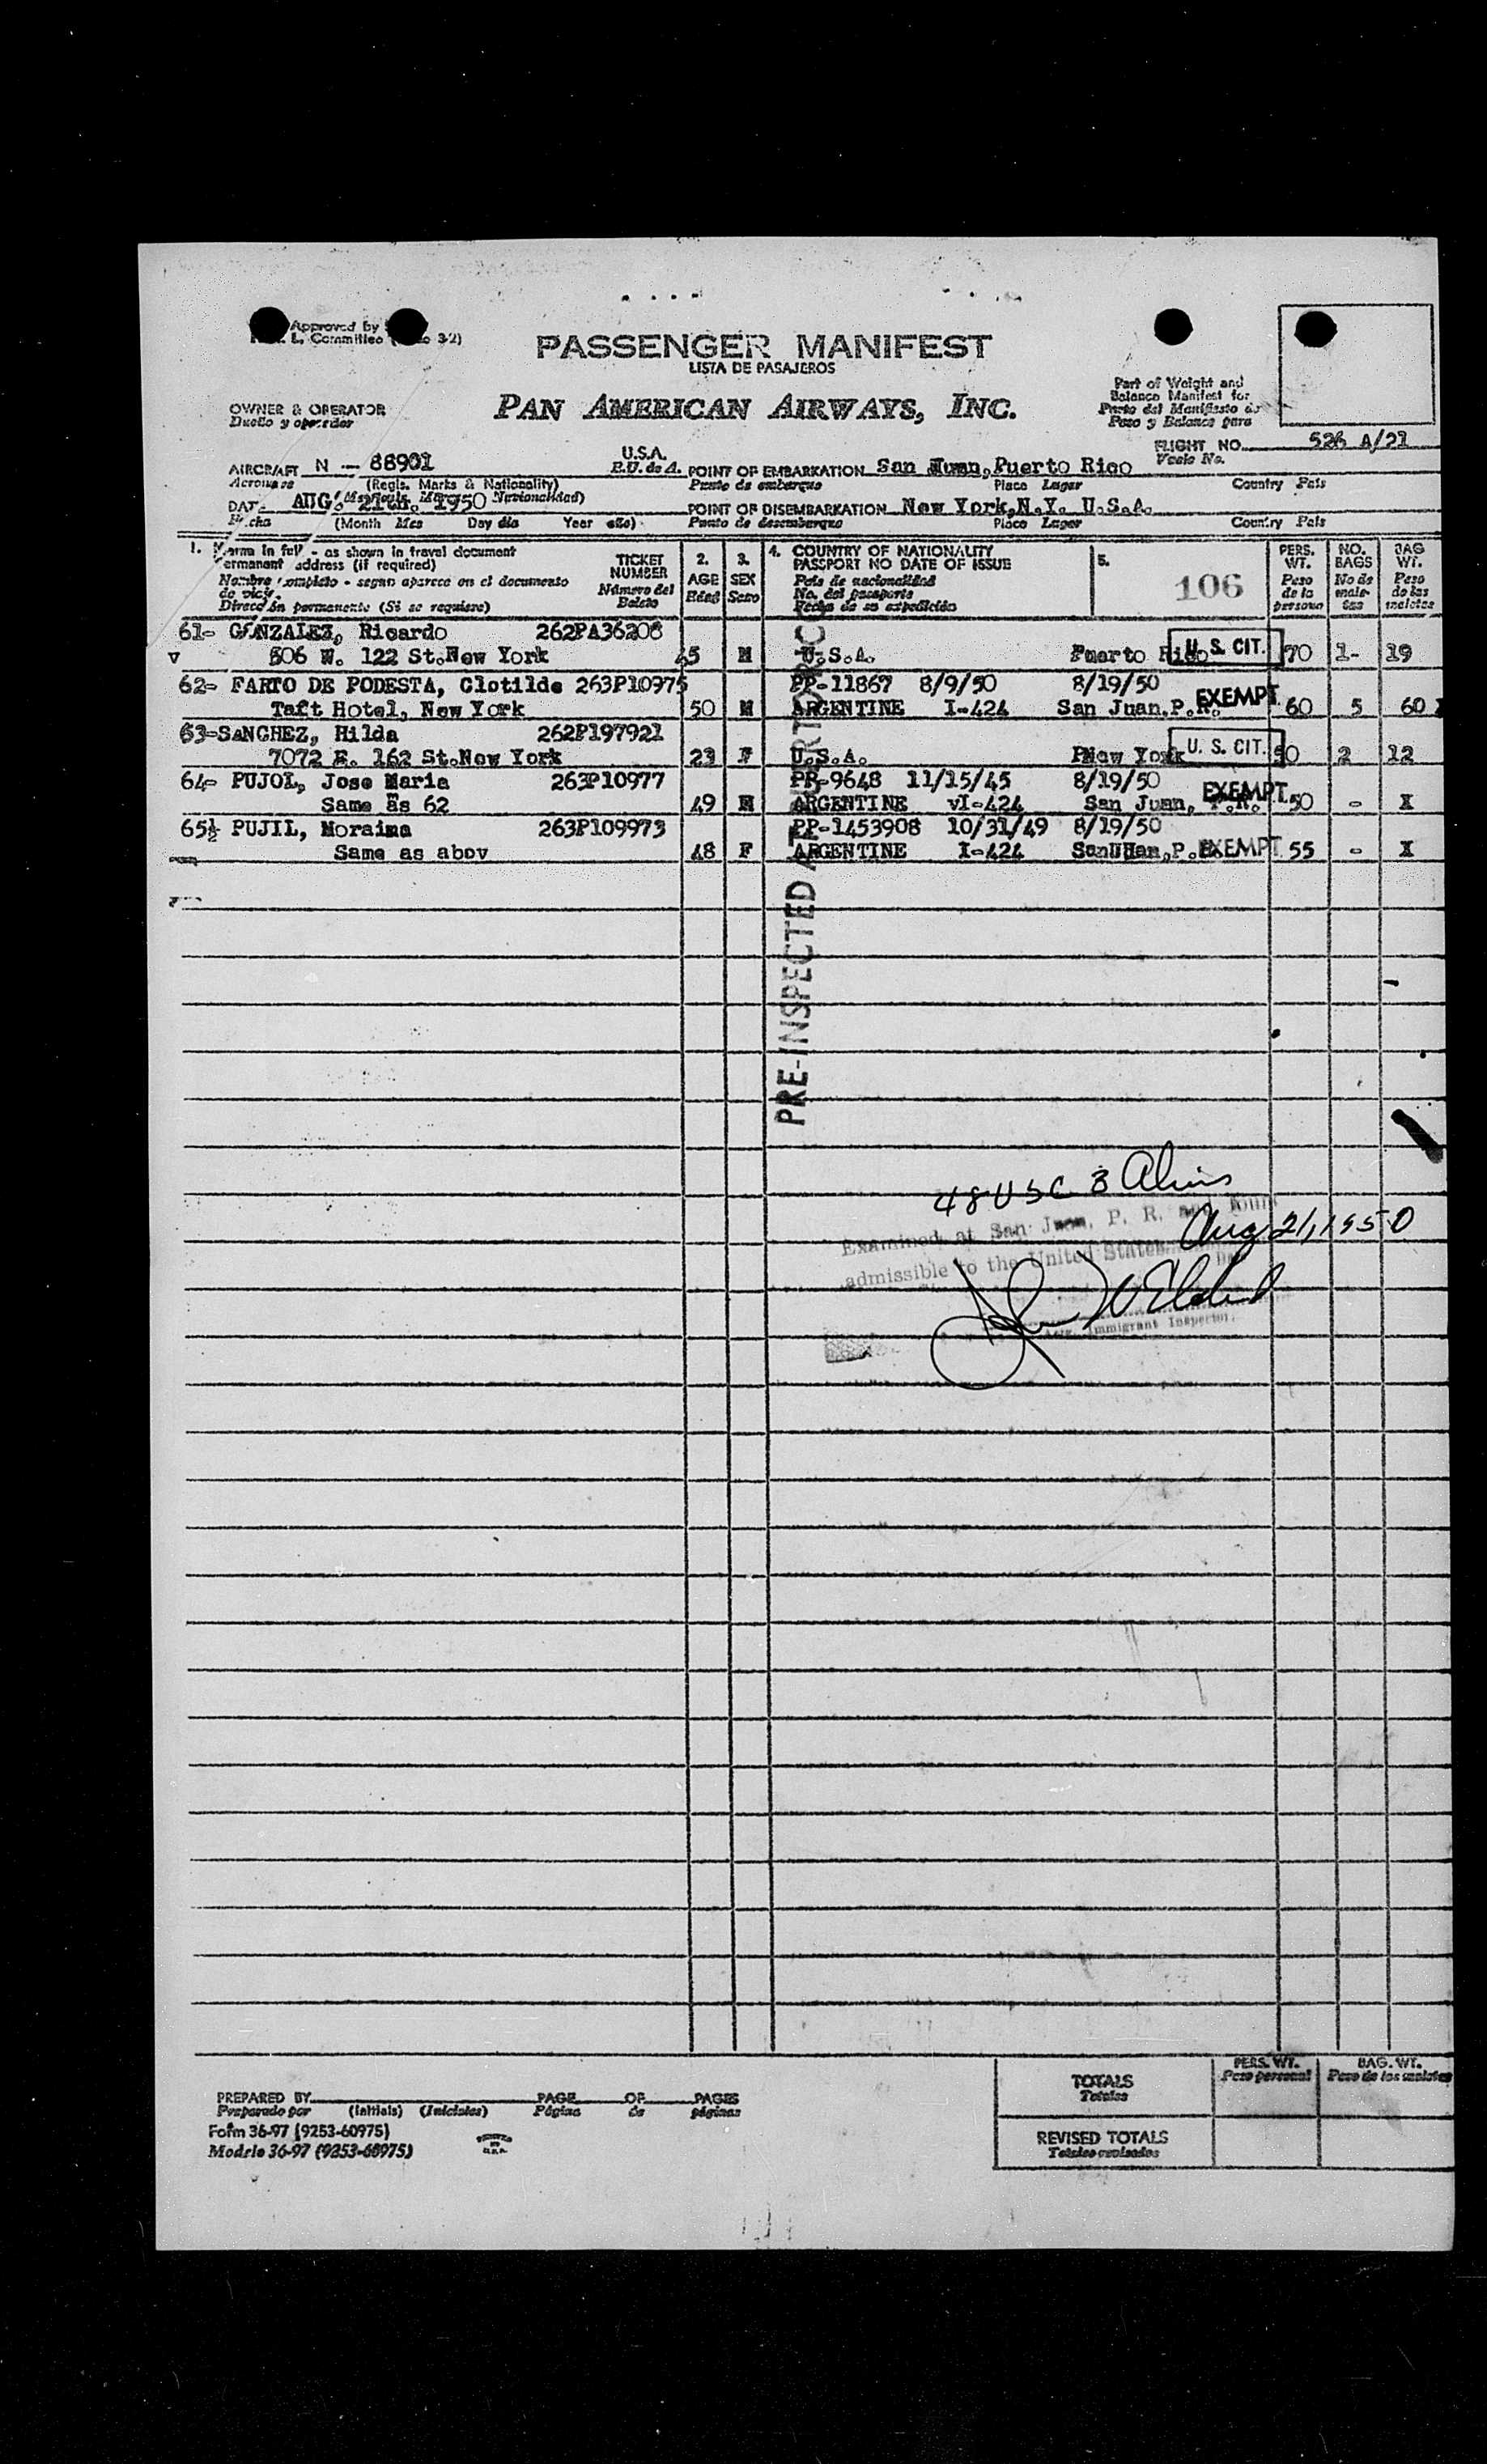 Approved by
L. Committee 32)
PASSENGER MANIFEST
LISTA DE PASAJEROS
Part of Weight and
Balance Manifest for
Parte del Manifiesto de
Peso y Balance para
OWNER & OPERATOR
Dueño y operador
PAN AMERICAN AIRWAYS, INC.
FLIGHT NO. 526 A/21
Vuelo No.
AIRCRAFT N - 88901 U.S.A. POINT OF EMBARKATION San Juan, Puerto Rico
Aeronave (Regis. Marks & Nationality) E.U. de A. Punto de embarque Place Lugar Country País
DATE AUG. 21th. 1950 POINT OF DISEMBARKATION New York,N.Y. U.S.A.
Fecha (Month Mes Day día Year año) Punto de desembarque Place Lugar Country País
1. Name in full - as shown in travel document
Permanent address (if required)
Nombre completo - segun aparece en el documento
de viaje.
Dirección permanente (Si se requiere)
TICKET
NUMBER
Número del
Boleto
2.
AGE
Edad
3.
SEX
Sexo
4. COUNTRY OF NATIONALITY
PASSPORT NO DATE OF ISSUE
País de nacionalidad
No. del pasaporte
Fecha de su expedición
5.
106
PERS.
WT.
Peso
de la
persona
NO.
BAGS
No de
male-
tas
BAG
WT.
Peso
de las
maletas
61- GONZALEZ, Ricardo 262PA36208
506 W. 122 St.New York 45 M U.S.A. Puerto Rico U. S. CIT. 70 1- 19
62- FARTO DE PODESTA, Clotilde 263P10975 PP-11867 8/9/50 8/19/50
Taft Hotel, New York 50 M ARGENTINE I-424 San Juan,P.R. EXEMPT 60 5 60
63-SANCHEZ, Hilda 262P197921
7072 E. 162 St.New York 23 F U.S.A. PNew York U. S. CIT. 50 2 12
64- PUJOL, Jose Maria 263P10977 PP-9648 11/15/45 8/19/50
Same as 62 49 M ARGENTINE vI-424 San Juan, P.R. EXEMPT 50 - X
65½ PUJIL, Moraima 263P109973 PP-1453908 10/31/49 8/19/50
Same as abov 48 F ARGENTINE I-424 EXEMPT 55 - X
PRE-INSPECTED
48 USC 3 Aliens
Aug 21, 1950
Examined at San Juan, P. R. and found
admissible to the United States
Immigrant Inspector.
TOTALS
Totales
PERS. WT.
Peso personal
BAG. WT.
Peso de las maletas
PREPARED BY PAGE OF PAGES
Preparado por (Initials) (Iniciales) Página de páginas
Form 36-97 (9253-60975)
Modelo 36-97 (9253-60975)
PRINTED
IN
U.S.A.
REVISED TOTALS
Totales revisados